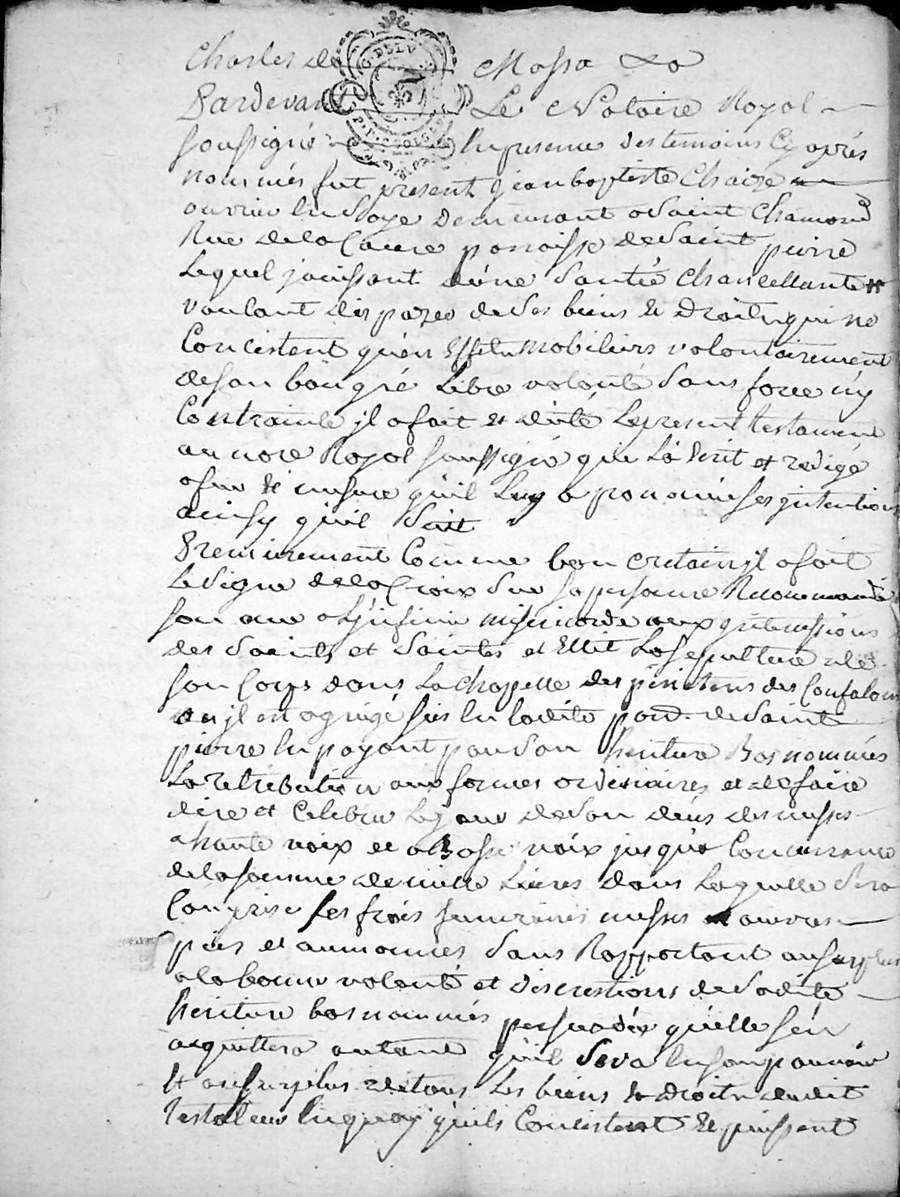 Charles de Massa &a
Pardevant Le Notaire Royal
soussigné En presence des temoins Cy aprés
nommés fut present jean baptiste Chaize
ouvrier En Soye demeurant a Saint Chamond
Rue de la paroisse de Saint pierre
Lequel jouissant d'une Santé Chancellante
voulant disposer de Ses biens & droits qui ne
Concistent qu'en Effets Mobiliers volontairement
de son bon gré Libre volonté Sans force ny
Contrainte jl a fait et dicté Le present testament
au nore Royal soussigné qui L'a Ecrit et redigé
a fur & mesure qu'il Luy a prononcé ses jntentions
ainsy qu'il Suit
Premierement Comme bon cretain jl a fait
Le Signe de la Croix Sur sa personne Recommandé
son ame a L'jnfinie misericorde aux jntercessions
des Saints et Saintes et Ellit La Sepulture de
son Corps dans La Chappelle des penitens des Confalons
ou jl est agregé En Ladite paroi. de Saint
pierre En payant par Son heritiere Bas nommée
La retribution aux formes ordinaires et de faire
dire et Celebrer Le jour de Son deceds des messes
a haute voix et a Basse voix jusqu'a Concurrance
de la somme de Livres dans Laquelle Sera
Comprise Les frais funeraires messes & œuvres
pies et aumones Sans Rapportant au surplus
a la bonne volonté et discrestions de Sadite
heritiere bas nommée persuadé qu'elle s'en
acquittera autant qu'il Sera En son pouvoir
Et au surplus de tous Les biens & droits dudit
testateur En quoy qu'ils Concistent & puissent